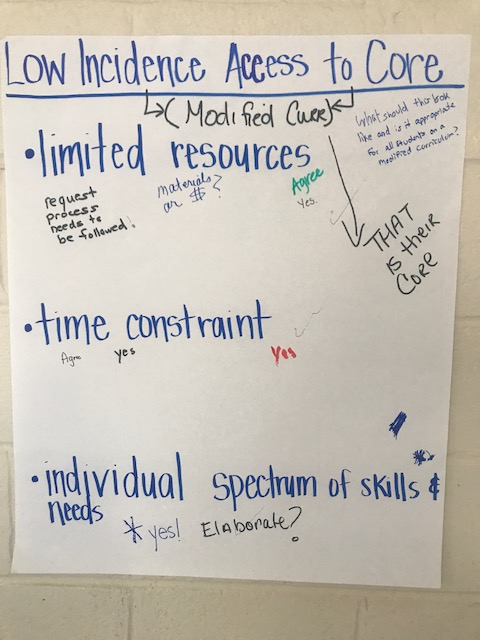 Low Incidence Access to Core
(Modified Curr)
What should this look
like and is it appropriate
for all students on a
modified curriculum?
• limited resources
request
process
needs to
be followed!
materials
or $?
Agree
Yes.
THAT
is their
Core
• time constraint
Agree
yes
Yes
• individual spectrum of skills &
needs
* yes!
Elaborate?